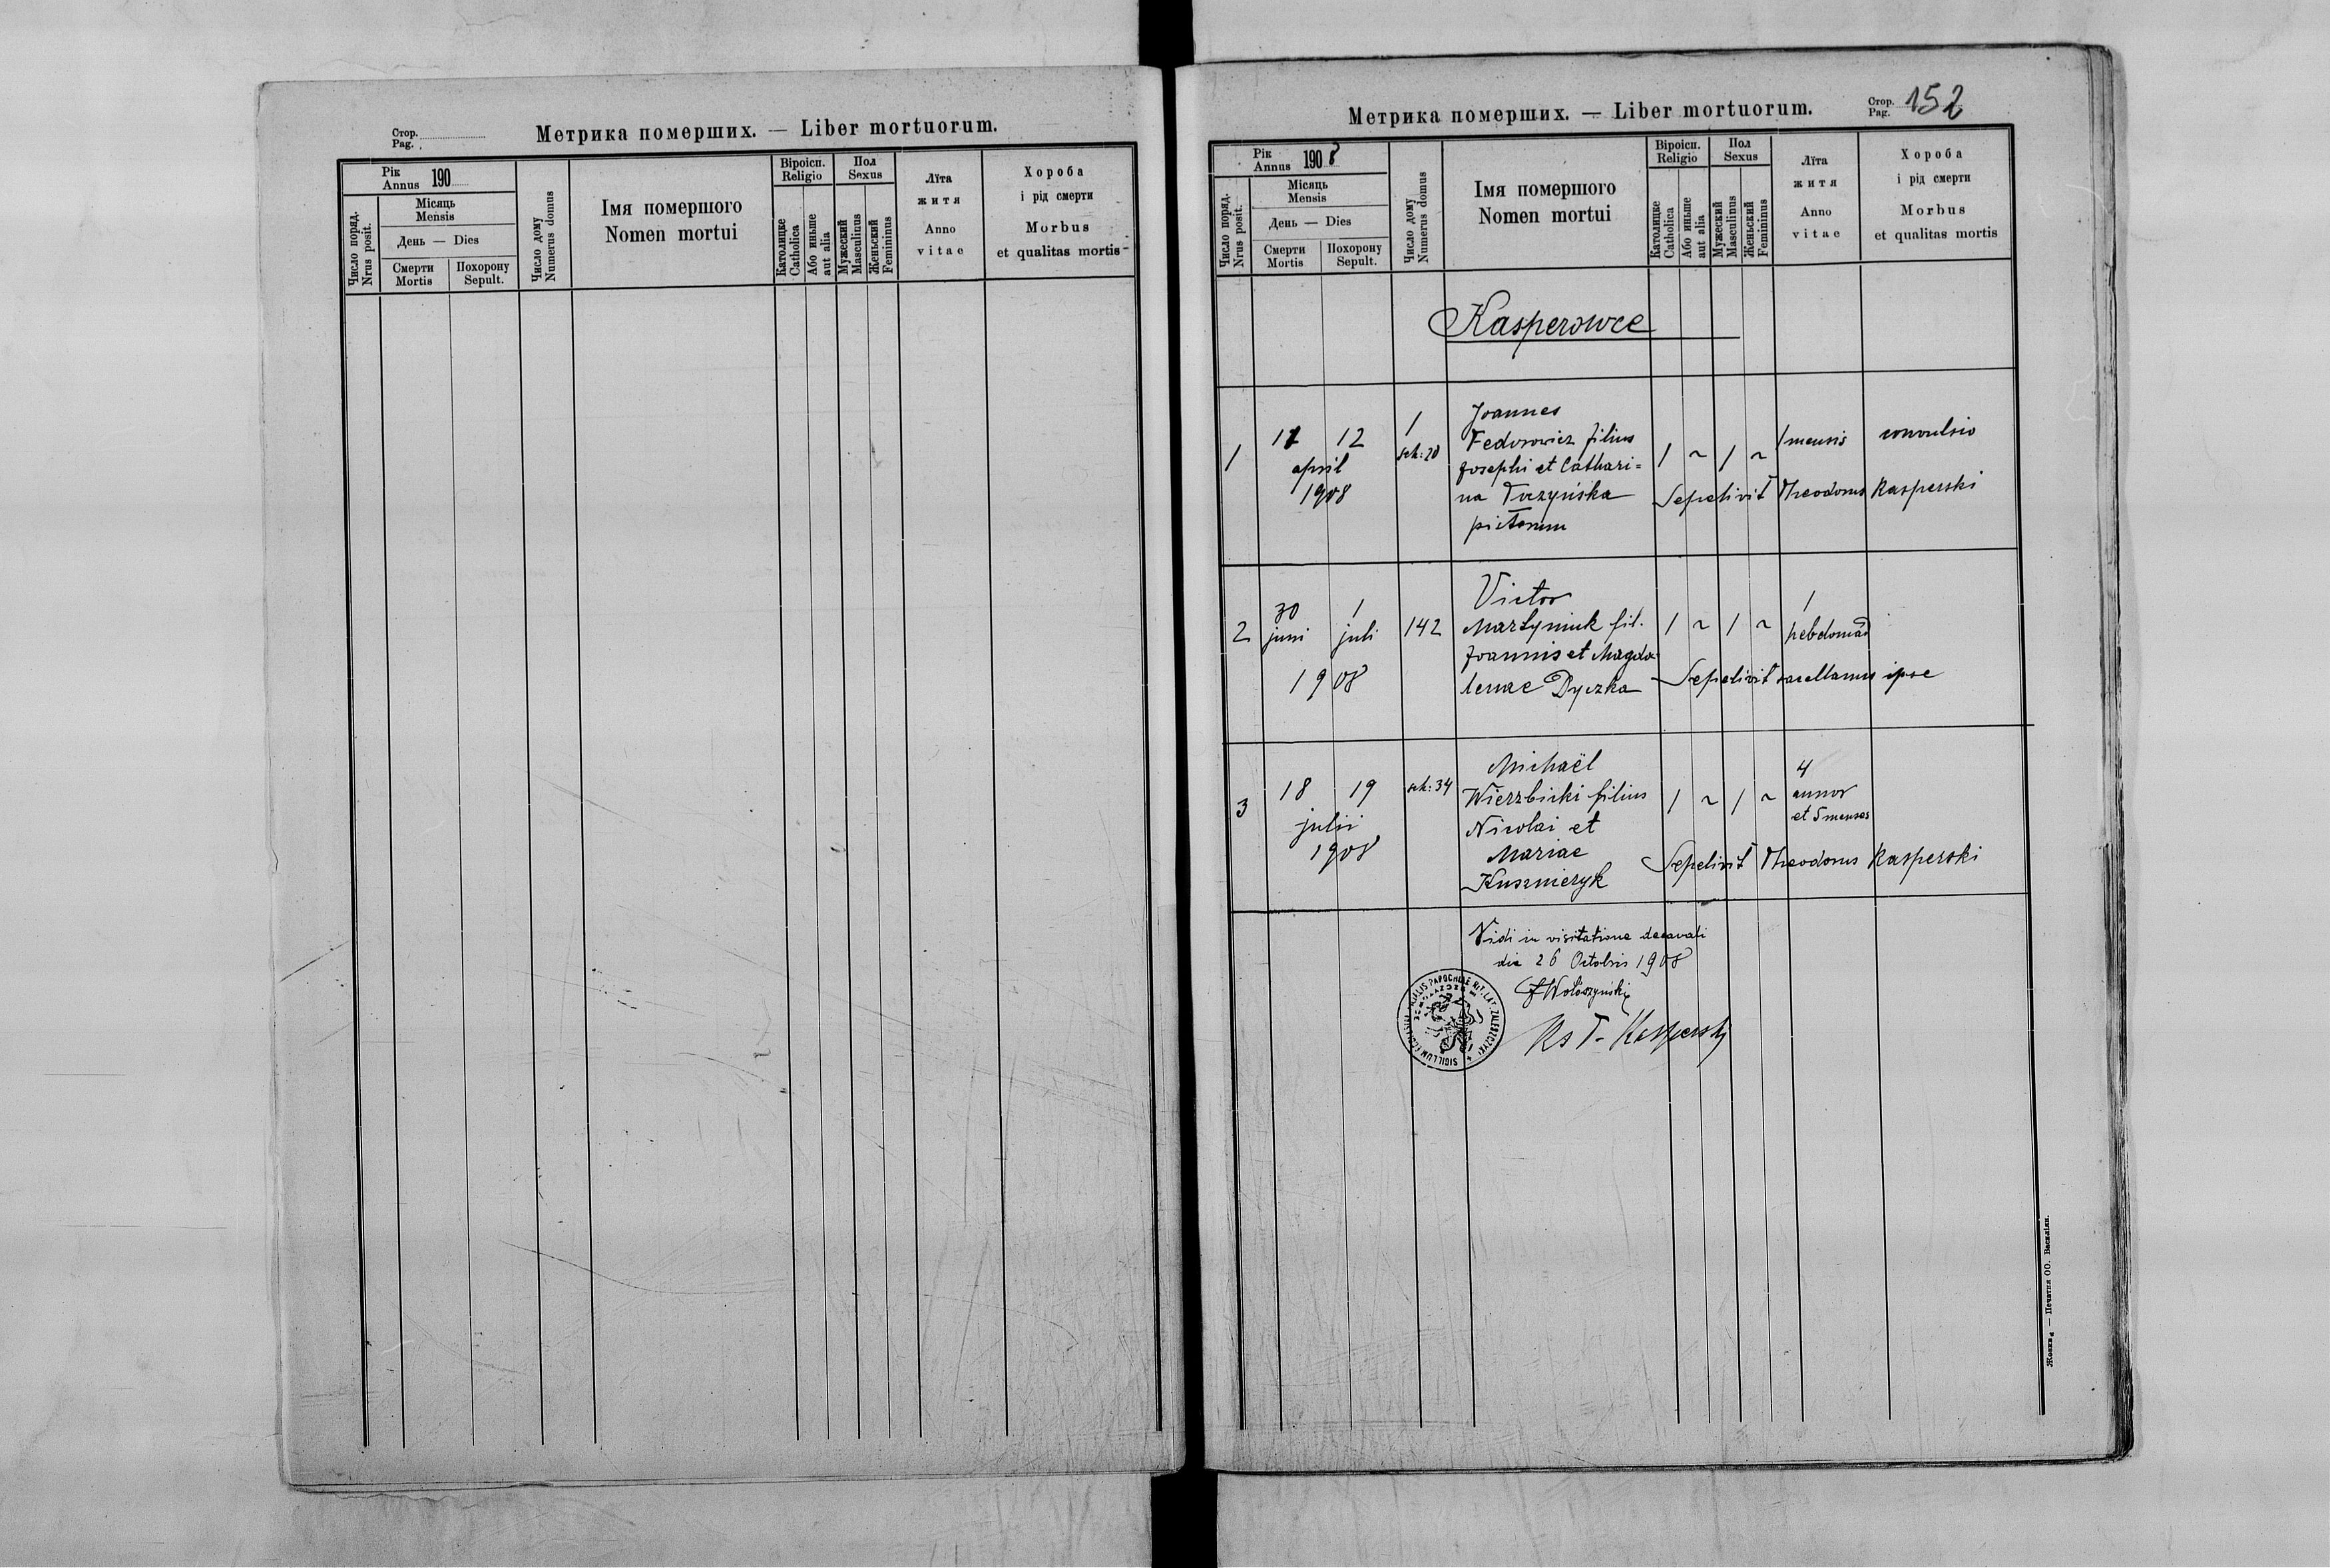 Стор.
Pag.
Метрика померших. — Liber mortuorum.
Число поряд.
Nrus posit.
Рік
Annus 190
Місяць
Mensis
День — Dies
Смерти
Mortis
Похорону
Sepult.
Число дому
Numerus domus
Імя помершого
Nomen mortui
Віроісп.
Religio
Католицке
Catholica
Або иньше
aut alia
Пол
Sexus
Мужеский
Masculinus
Женьский
Femininus
Лїта
житя
Anno
vitae
Хороба
і рід смерти
Morbus
et qualitas mortis
Метрика померших. — Liber mortuorum.
Стор.
Pag. 152
Число поряд.
Nrus posit.
Рік
Annus 1908
Місяць
Mensis
День — Dies
Смерти
Mortis
Похорону
Sepult.
Число дому
Numerus domus
Імя помершого
Nomen mortui
Віроісп.
Religio
Католицке
Catholica
Або иньше
aut alia
Пол
Sexus
Мужеский
Masculinus
Женьский
Femininus
Лїта
житя
Anno
vitae
Хороба
і рід смерти
Morbus
et qualitas mortis
Kasperowce
1
12
april
1908
1
sch: 28
Joannes
Fedorowicz filius
Josephi et Cathari=
na
pictorum
1 ~ 1 ~ 1 mensis convulsio
Sepelivit Theodorus Kasperski
2
30 1
juni juli
1908
142
Victor
Martyniuk fil.
Joannis et Magda-
lenae Dyczka
1 ~ 1 ~ 1
hebdomad
Sepelivit sacellanus ipse
3
18 19
julii
1908
sch: 34
Michaël
Wierzbicki filius
Nicolai et
Mariae
Kusznieryk
1 ~ 1 ~ 4
annor
et 5 menses
Sepelivit Theodorus Kasperski
Vidi in visitatione decanali
die 26 Octobris 1908
Wołoszyński
Ks T. Kasperski
SIGILLUM PAROCHIAE RIT. LAT. ZALESZCZYKI
Жовква — Печатня ОО. Василіян.